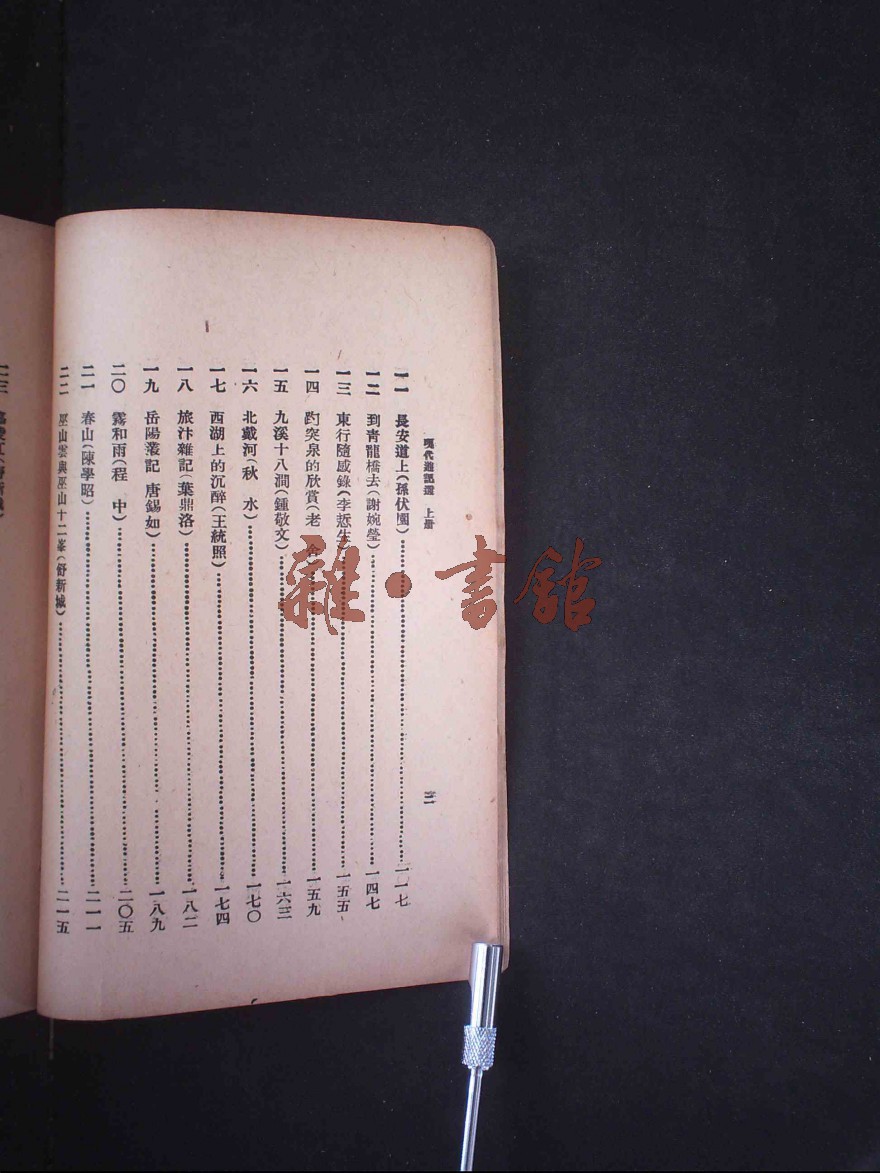 現代遊記選 上册
二
一一 長安道上(孫伏園)……一〇一七
一二 到青龍橋去(謝婉瑩)……一四七
一三 東行隨感錄(李悊生)……一五五
一四 趵突泉的欣賞(老 舍)……一五九
一五 九溪十八澗(鍾敬文)……一六三
一六 北戴河(秋 水)……一七〇
一七 西湖上的沉醉(王統照)……一七四
一八 旅汴雜記(葉鼎洛)……一八二
一九 岳陽叢記 唐錫如)……一八九
二〇 霧和雨(程 中)……二〇五
二一 春山(陳學昭)……二一一
二二 巫山雲與巫山十二峯(舒新城)……二一五
雜·書館